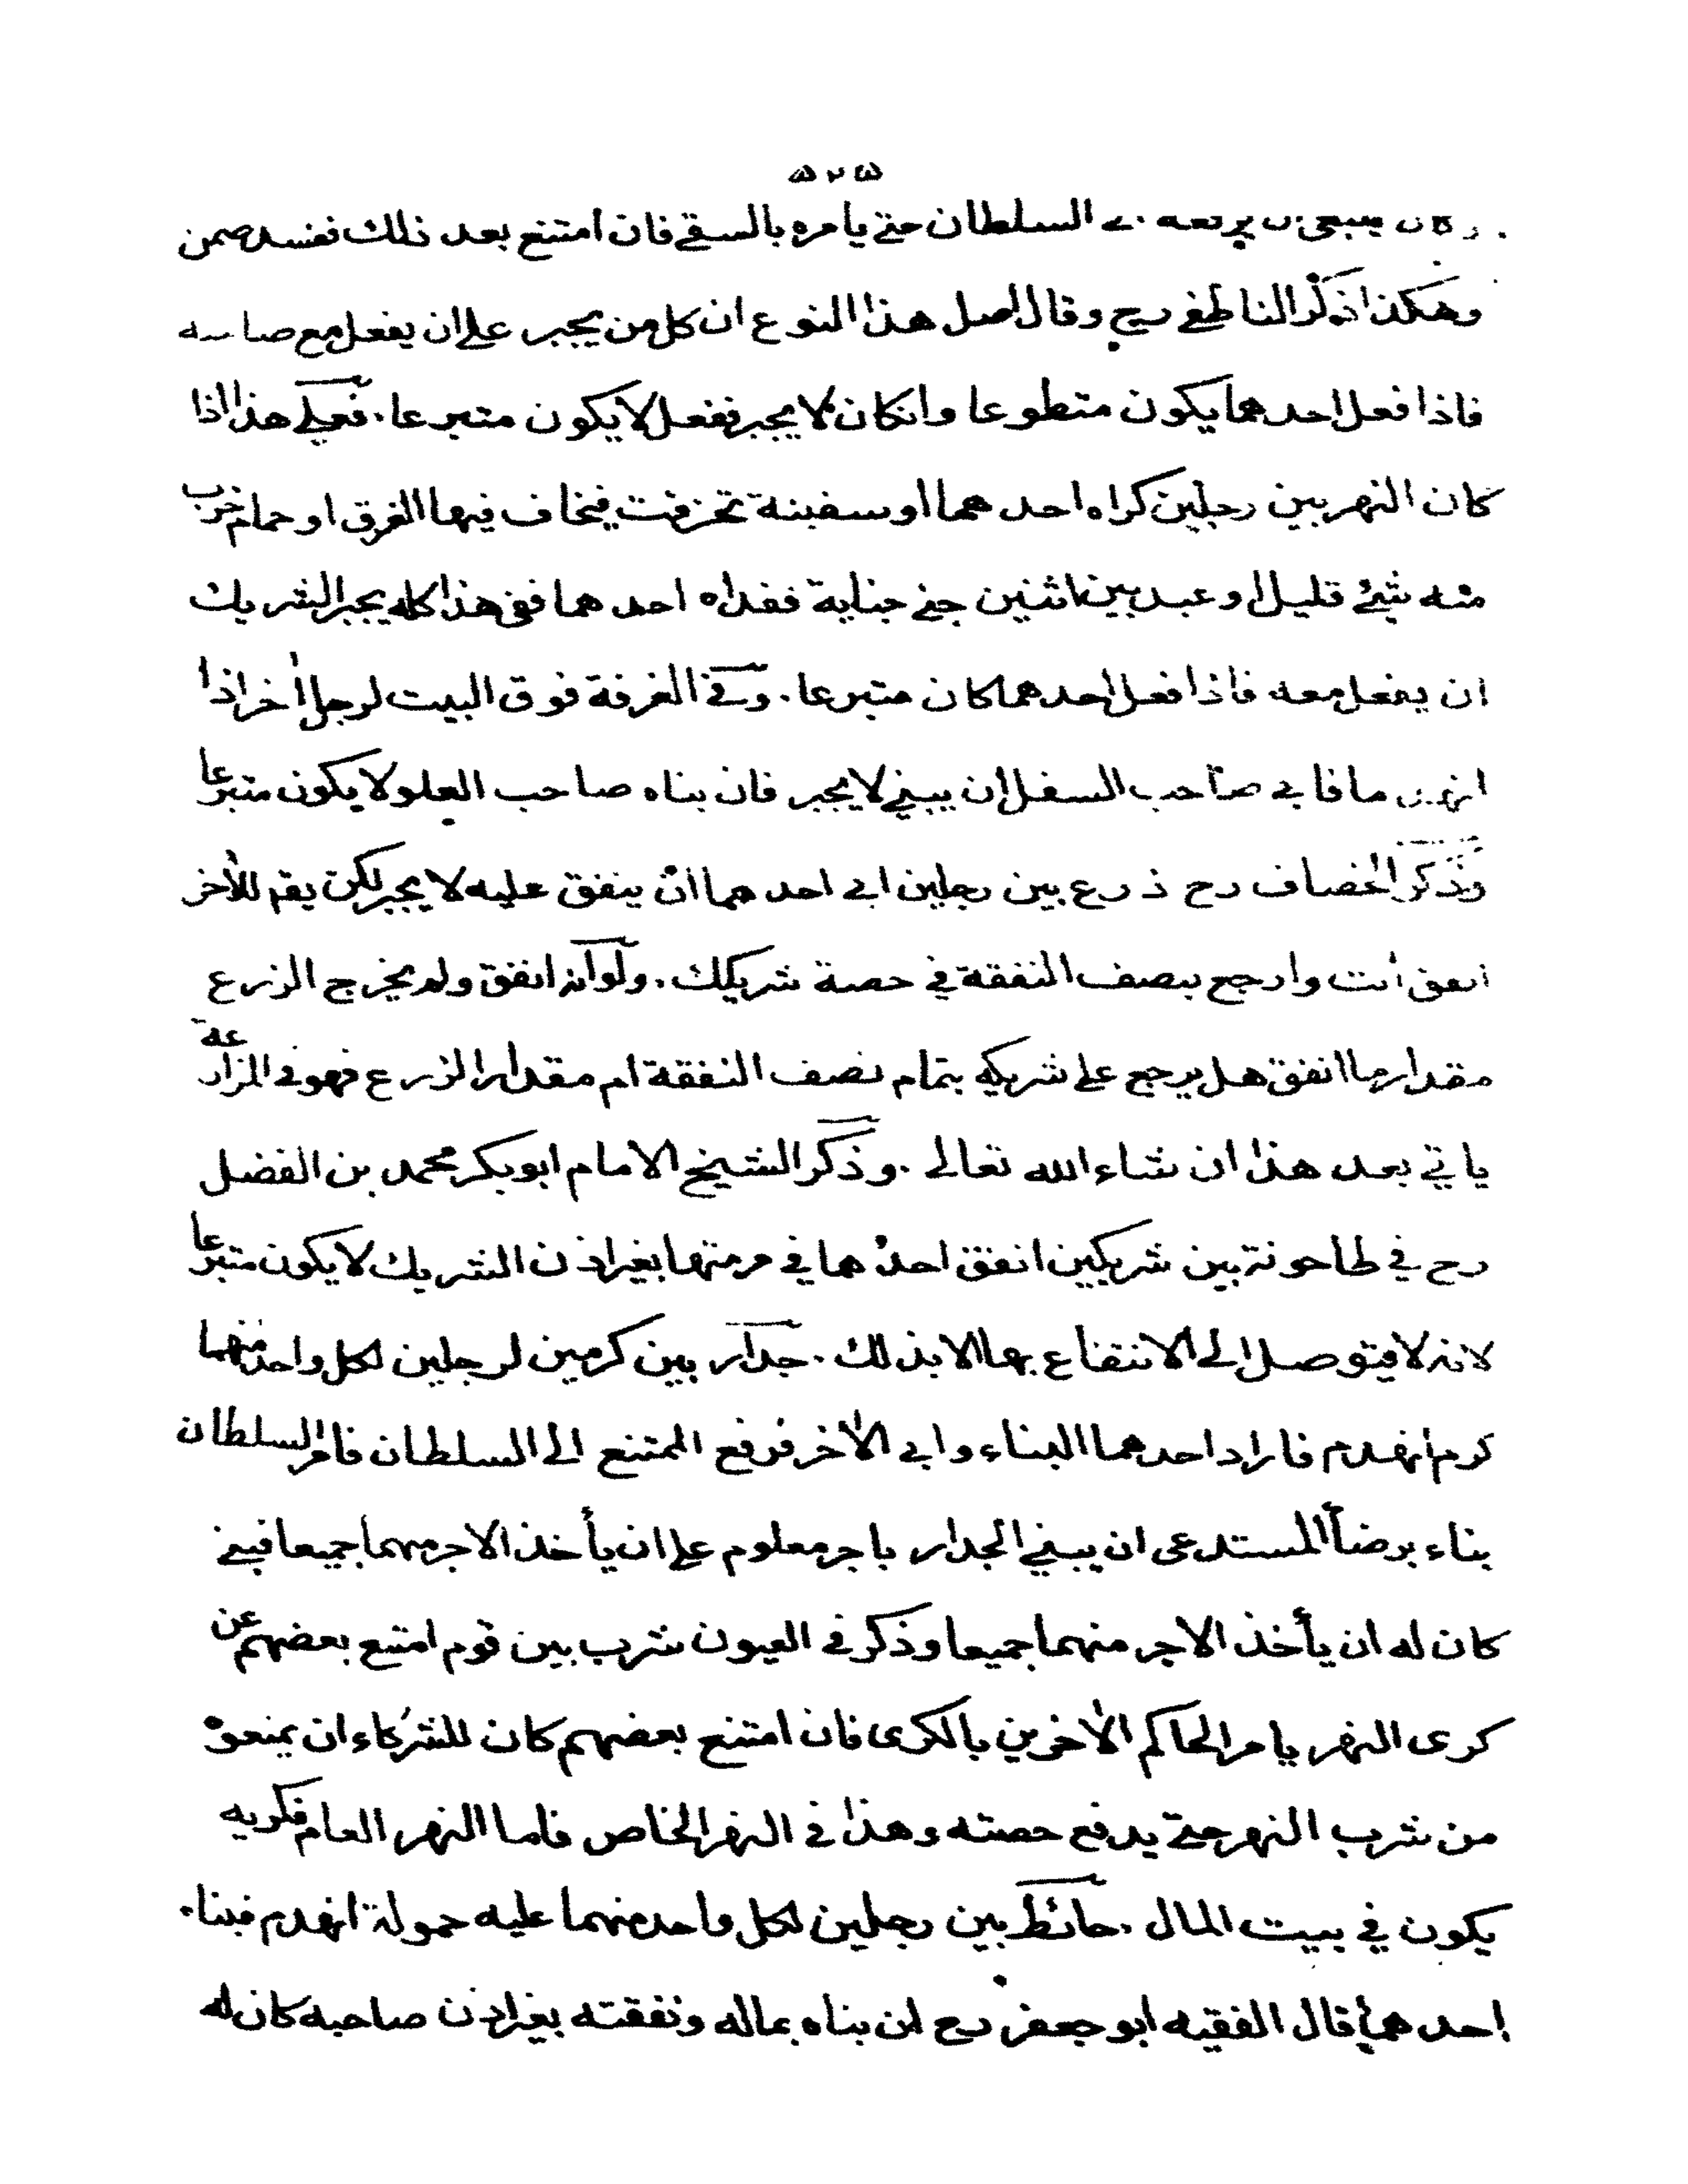 ۵۲۵
السلطان حتى يامره بالسقي فان امتنع بعد ذلك نفسد ضمن
وهكذا ذكر الناطفي رح وقال اصل هذا النوع ان كل من يجبر على ان يفعل مع
فاذا فعل احدهما يكون متطوعا وانكان لا يجبر ففعل لا يكون متبرعا. فعلى هذا اذا
كان النهر بين رجلين كراه احدهما او سفينة تخرفت فيخاف فيها الغرق او حمام خرب
منه شيئ قليل او عبد بين اثنين جنى جناية ففداه احدهما ففي هذا كله يجبر الشريك
ان يفعل معه فاذا فعل احدهما كان متبرعا. وفي الغرفة فوق البيت لرجل اخر اذا
فابى صاحب السفل ان يبني لا يجبر فان بناه صاحب العلو لا يكون متبرعا
وذكر الخصاف رح ذرع بين رجلين ابى احدهما ان ينفق عليه لا يجبر لكن يقم للأخر
انفق انت وارجع بنصف النفقة في حصة شريكك. ولو انه انفق ولم يخرج الزرع
مقدار ما انفق هل يرجع على شريكه بتمام نصف النفقة ام مقدار الزرع فهو في المزارعة
ياتي بعد هذا ان شاء الله تعالى. وذكر الشيخ الامام ابو بكر محمد بن الفضل
رح في طاحونة بين شريكين انفق احدهما في مرمتها بغير اذن الشريك لا يكون متبرعا
لانه لا يتوصل الى الانتفاع بها الا بذلك. جدار بين كرمين لرجلين لكل واحد منهما
كرم انهدم فاراد احدهما البناء وابى الأخر فرفع الممتنع الى السلطان فامر السلطان
بناء برضا المستدعى ان يبني الجدار باجر معلوم على ان يأخذ الاجر منهما جميعا فبنى
كان له ان يأخذ الاجر منهما جميعا وذكر في العيون شرب بين قوم امتنع بعضهم عن
كرى النهر يامر الحاكم الأخرين بالكرى فان امتنع بعضهم كان للشركاء ان يمنعوه
من شرب النهر حتى يدفع حصته وهذا في النهر الخاص فاما النهر العام فكريه
يكون في بيت المال. حائط بين رجلين لكل واحد منهما عليه حمولة انهدم فبناه
احدهما قال الفقيه ابو جعفر رح ان بناه بماله ونفقته بغير اذن صاحبه كان له